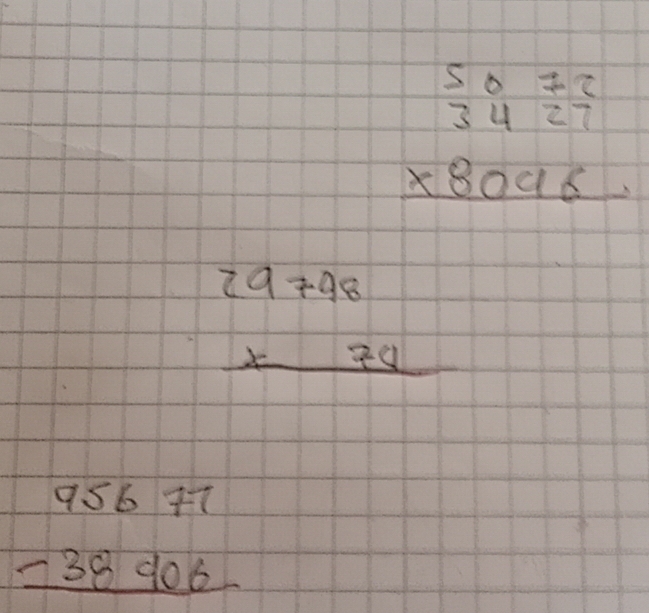 50 72
34 27
x 8096
29798
x 79
956 77
- 38 906